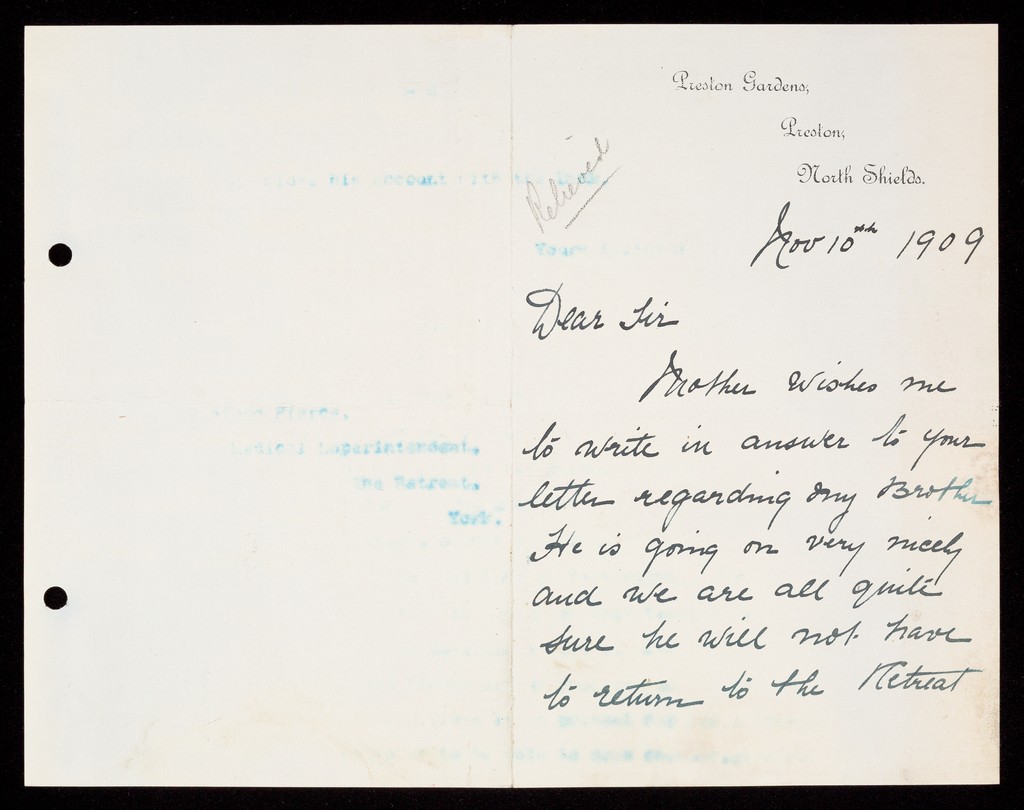 Preston Gardens,
Preston,
North Shields.
Relieved
Nov 10th 1909
Dear Sir
Mother wishes me
to write in answer to your
letter regarding my Brother
He is going on very nicely
and we are all quite
sure he will not have
to return to the Retreat
his account with the
Yours
Pierce,
Medical Superintendent,
The Retreat,
York.